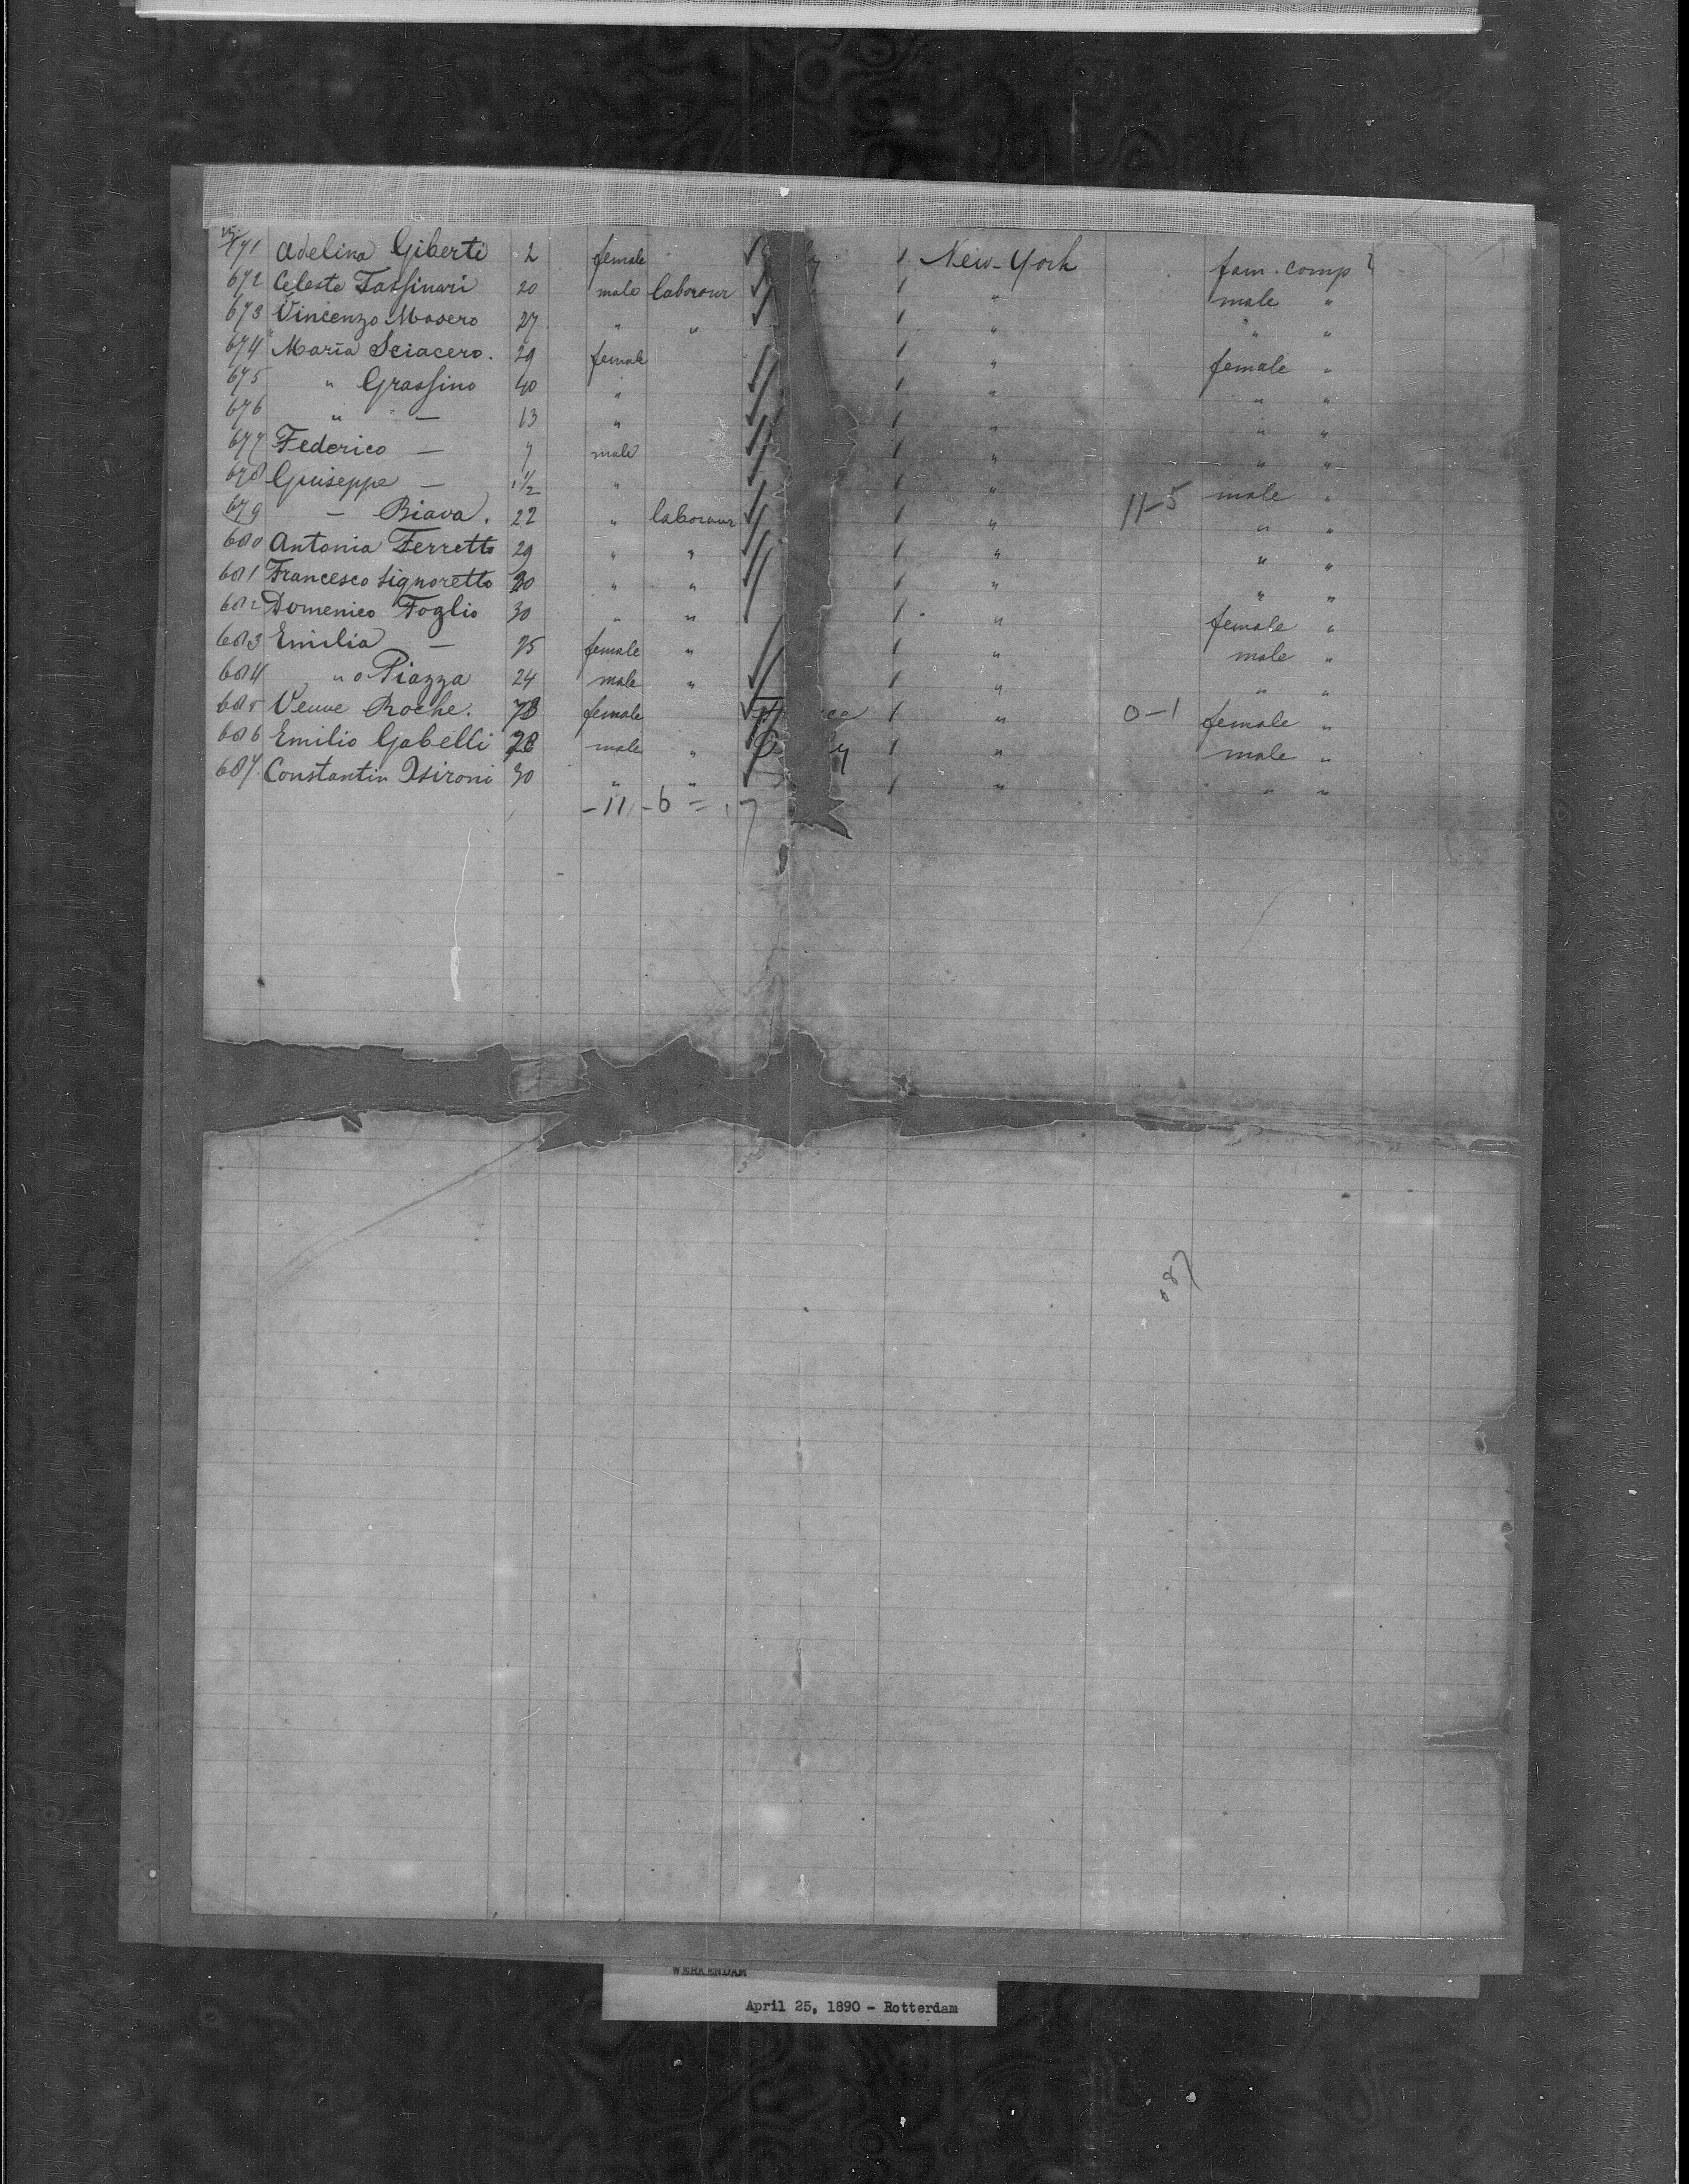 671 Adelina Giberti 2 female y 1 New-York fam. comp
672 Celeste Tassinari 20 male labourer 1 " male "
673 Vincenzo Masero 27 " " 1 " " "
674 Maria Sciacero. 29 female 1 " female "
675 " Grassino 40 " 1 " " "
676 " — 13 " 1 " " "
677 Federico — 7 male 1 " " "
678 Guiseppe — 1½ " 1 " 11-5 male "
679 — Biava. 22 " labourer 1 " " "
680 Antonia Ferretto 29 " " 1 " " "
681 Francesco Signoretto 30 " " 1 " " "
682 Domenico Foglio 30 " " 1 " female "
683 Emilia — 25 female " 1 " male "
684 " Piazza 24 male " 1 " " "
685 Veuve Roche. 73 female 1 " 0-1 female "
686 Emilio Gabelli 28 male " y 1 " male "
687 Constantin Isironi 30 " " 1 " " "
-11-6=17
WERKENDAM
April 25, 1890 - Rotterdam